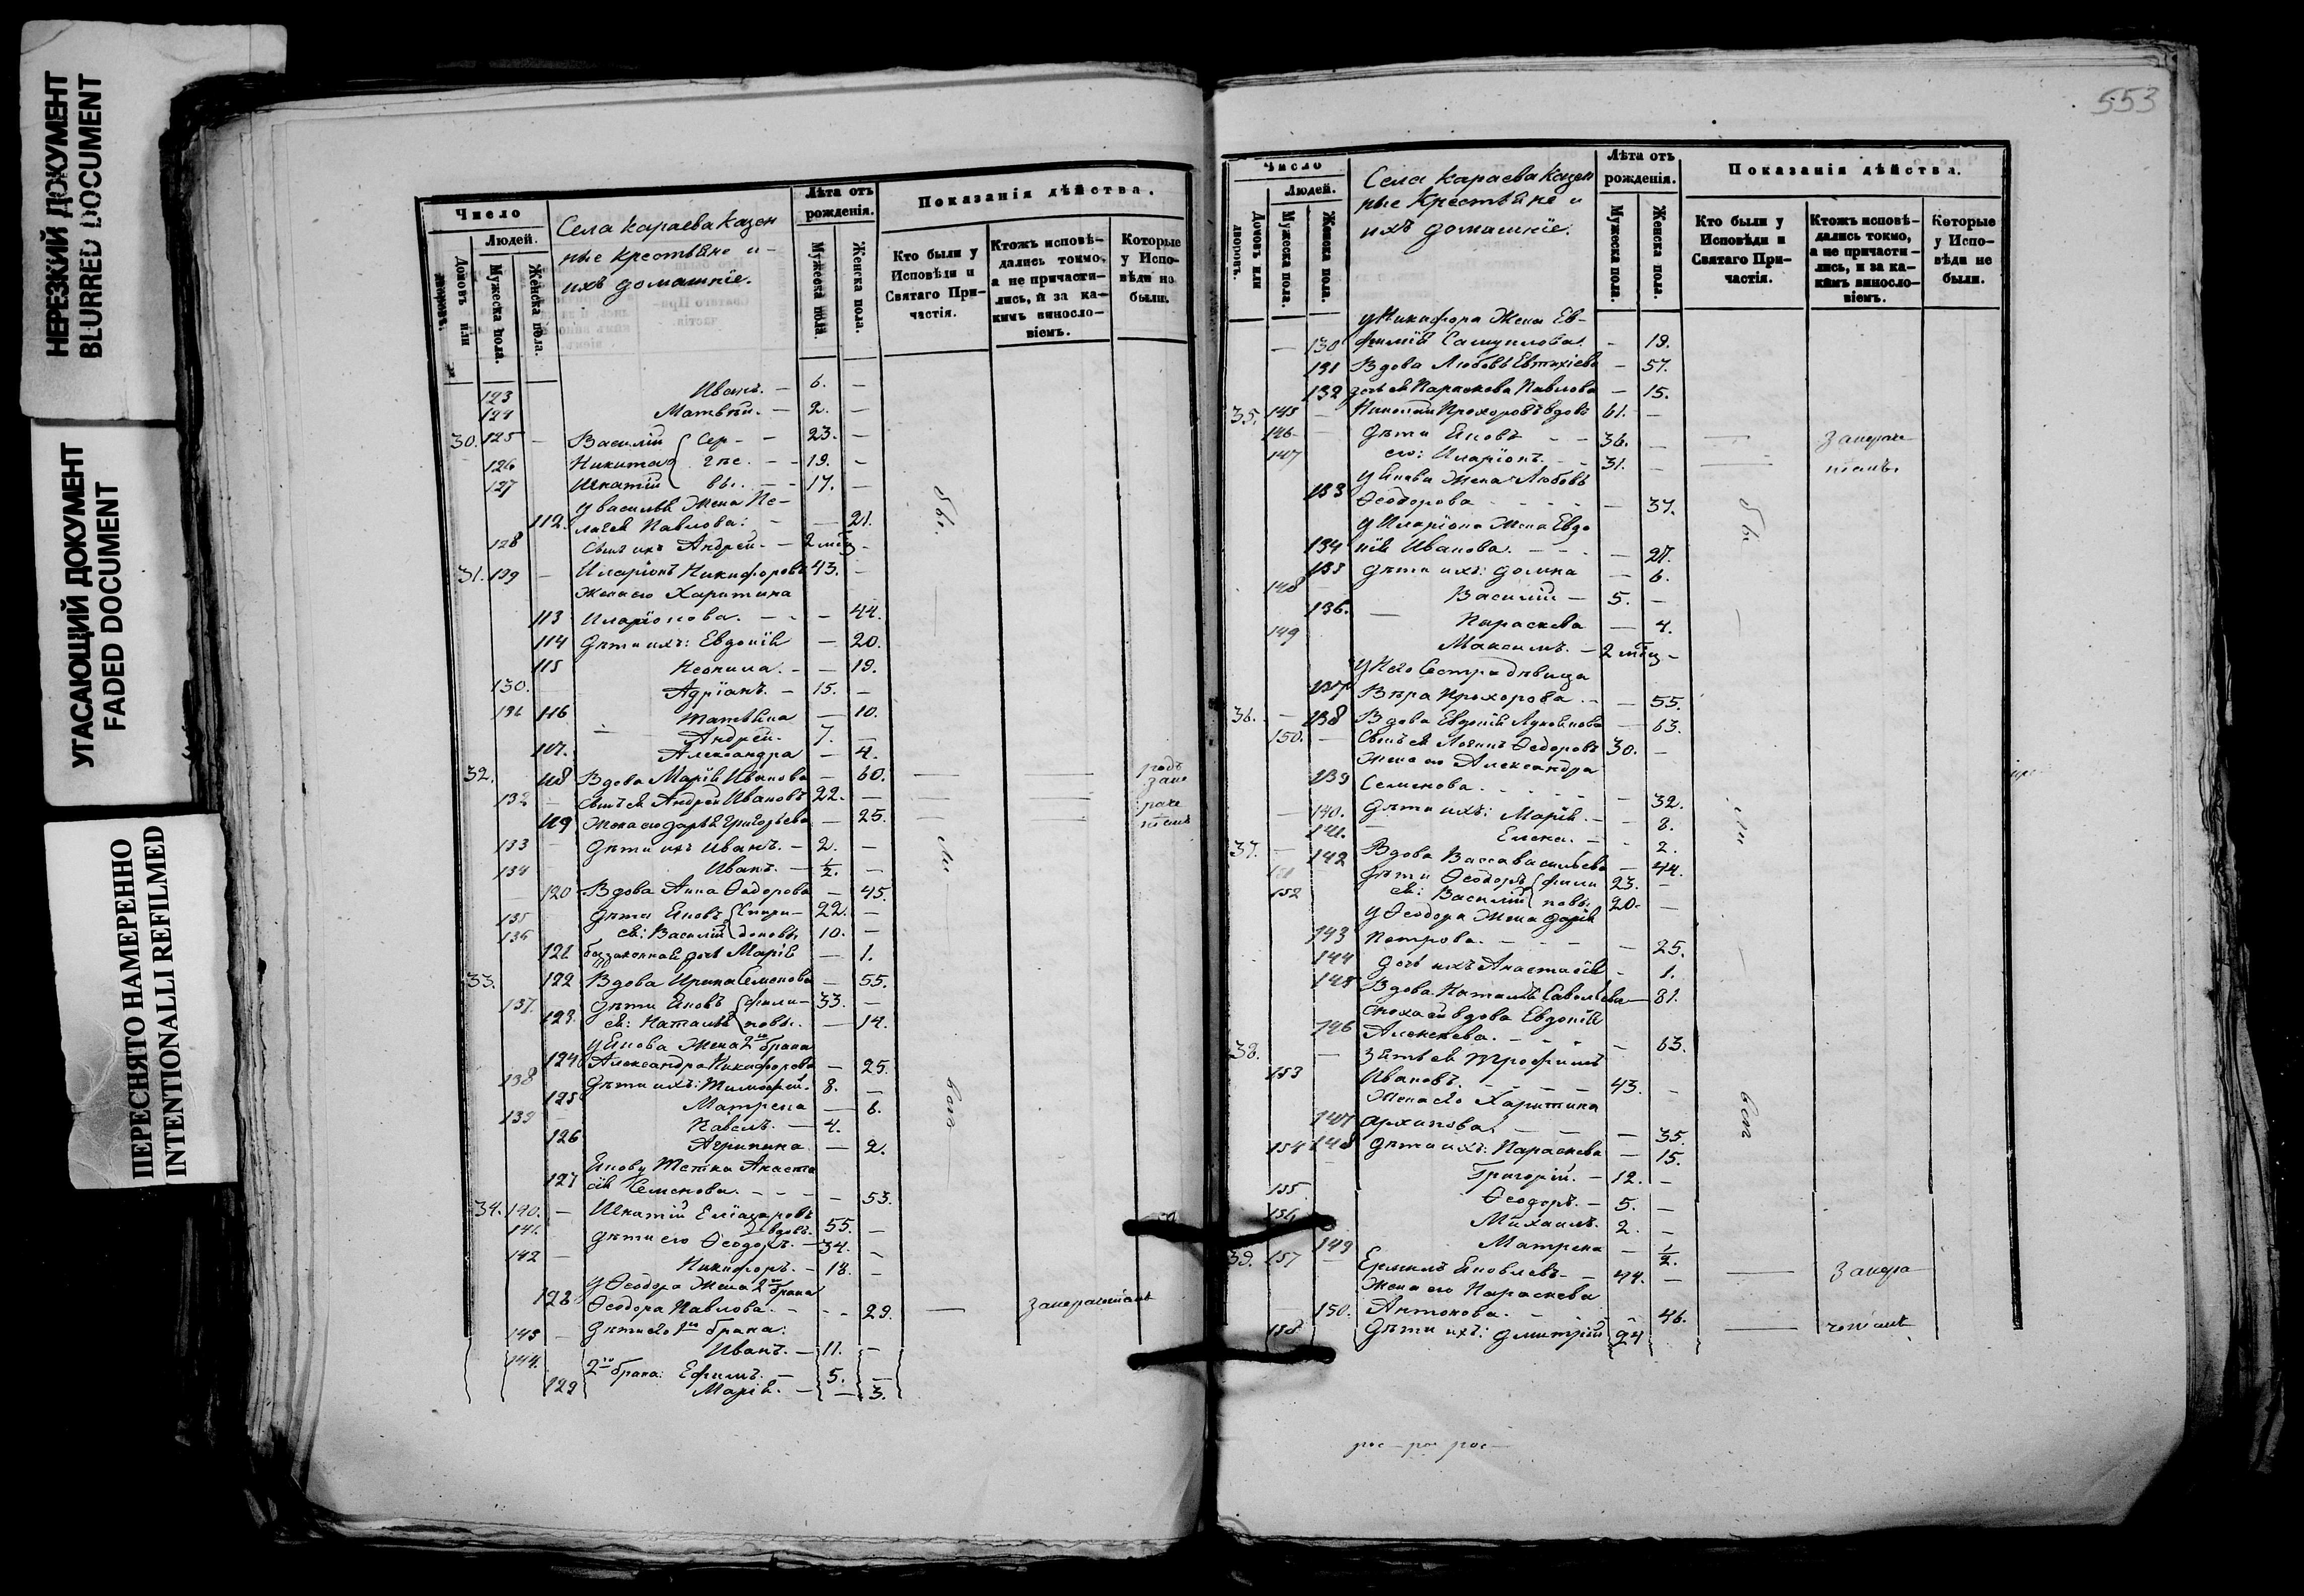 НЕРЕЗКИЙ ДОКУМЕНТ
BLURRED DOCUMENT
УГАСАЮЩИЙ ДОКУМЕНТ
FADED DOCUMENT
ПЕРЕСНЯТО НАМЕРЕННО
INTENTIONALLI REFILMED
Число
Людей.
Домовъ или дворовъ.
Мужеска пола.
Женска пола.
Села Караева Казен
ные крестьяне и
ихъ домашніе.
Лѣта отъ рожденія.
Мужеска пола.
Женска пола.
Показанія дѣйства.
Кто были у Исповѣди и Святаго При-частія.
Ктожъ исповѣ-дались токмо, а не причасти-лись, и за ка-кимъ винословіемъ.
Которые у Испо-вѣди не были.
123 Иванъ. — 6. —
124 Матвѣй. — 2. —
30. 125 — Василій Сер- — 23. —
126 Никита гѣе. — 19. —
127 Игнатій вы. — 17. —
у Василья жена Пе-
112. лагея Павлова: — 21.
128 сынъ ихъ Андрей. — 2 мѣц —
31. 129 — Иларіонъ Никифоровъ 43. —
жена его Харитина
113 Иларіонова. — — 44.
114 Дѣти ихъ: Евдокія — 20.
115 Неонила. — — 19.
130. Адріанъ. — 15. —
116 Татьяна — 10.
131 Андрей. 7. —
117. Александра — 4.
32. 118 Вдова Марія Иванова — 60.
132 — сынъ ея Андрей Ивановъ 22. —
119 жена его Дарья Григорьева — 25.
133 — Дѣти ихъ Иванъ. — 2. —
134 Иванъ. — 1/2. —
120 Вдова Анна Ѳедорова — 45.
135 Дѣти Яковъ Спири- 22. —
136 ея: Василій доновы 10. —
121 беззаконная дочь Марія — 1.
33. 122 Вдова Ирина Семенова — 55.
137. Дѣти Яковъ Фили- 33. —
123. ея: Наталья повы. — 14.
у Якова жена 2го брака
124 Александра Никифорова — 25.
138 Дѣти ихъ: Тимофей. 8. —
125 Матрена — 6.
139 Павелъ. — 4.
126 Агрипина — 2.
Якову тетка Анаста
127 сія Семенова. — — 53.
34. 140. — Игнатій Еліазаровъ
вдовъ. 55. —
141. Дѣти его Ѳеодоръ. — 34. —
142 — Никифоръ. — 18. —
у Ѳеодора жена 2го брака
128 Ѳеодора Павлова. — — 29. — за нерачениемъ
Дѣти его 1го брака:
143 — Иванъ. — 11. —
144. 2го брака: Ефимъ. — 5. —
129 Марія. — — 3.
553
Число
Людей.
Домовъ или дворовъ.
Мужеска пола.
Женска пола.
Села Караева Казен
ные Крестьяне и
ихъ домашніе.
Лѣта отъ рожденія.
Мужеска пола.
Женска пола.
Показанія дѣйства.
Кто были у Исповѣди и Святаго При-частія.
Ктожъ исповѣ-дались токмо, а не причасти-лись, и за ка-кимъ винословіемъ.
Которые у Испо-вѣди не были.
у Никифора жена Ев-
— 130 фимія Самуилова. — 19.
131 Вдова Любовь Евтихіева — 57.
132 дочь ея Параскева Павлова — 15.
35. 145 — Николай Прохоровъ вдовъ 61. —
146 — Дѣти Яковъ — — 36. —
147 его: Иларіонъ. — 31. —
у Якова жена Любовь
133 Ѳеодорова — — 37.
у Иларіона жена Евдо
134 кія Иванова. — — — 27.
135 Дѣти ихъ: Домна — 6.
148 Василій — 5. —
136. — Параскева — 4.
149 Максимъ. — 2 мѣц —
у Него Сестра дѣвица
137 Вѣра Прохорова. — — 55.
36. — 138 Вдова Евдокія Лукьянова — 63.
150. — Сынъ ея Логинъ Ѳедоровъ 30. —
жена его Александра
139 Семенова. — 32.
— 140. Дѣти ихъ: Марія. — — 8.
141. Елена. — — 2.
37. — 142 Вдова Васса Васильева — 44.
Дѣти Ѳеодоръ Фили 23. —
152 ея: Василій повы. 20. —
у Ѳеодора жена Дарія
143 Петрова. — — 25.
144 Дочь ихъ Анастасія — 1.
145 Вдова Наталья Савельева — 81.
сноха ея вдова Евдокія
146 Алексѣева. — — 63.
38. — зять ея Трофимъ
153 Ивановъ. — — 43. —
жена его Харитина
147 Архипова. — — 35.
154 148 Дѣти ихъ: Параскева — 15.
Григорій. — 12. —
155 Ѳеодоръ. — 5. —
156 Михаилъ. 2. —
149 Матрена — 1/2.
39. 157 — Ермилъ Яковлевъ. — 44. —
жена его Параскева
150. Антонова. — — 46.
158 Дѣти ихъ: Дмитрій 24
рос — рос рос —